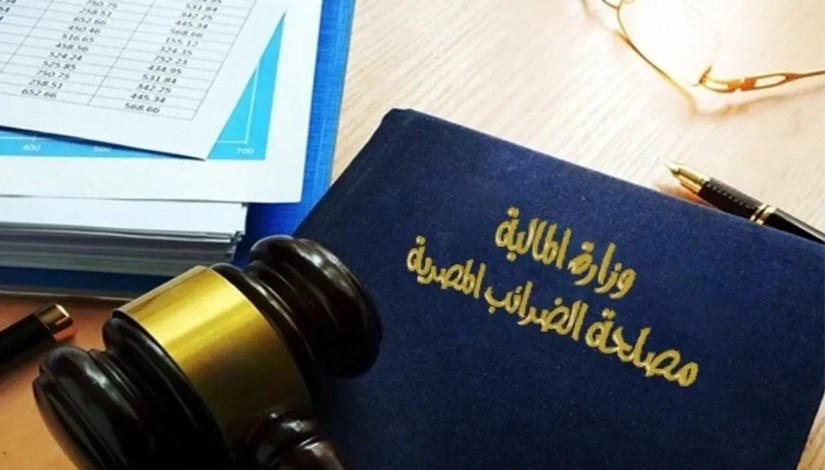 750.75 531.84
258.51 205.11
652.66 568.66
450.46 155.12
516.65 324.35
458.56 752.23
524.24 434.95
525.85 531.84
750.75 342.25
258.51 445.34
652.66 568.66
400 500 700
وزارة المالية
مصلحة الضرائب المصرية